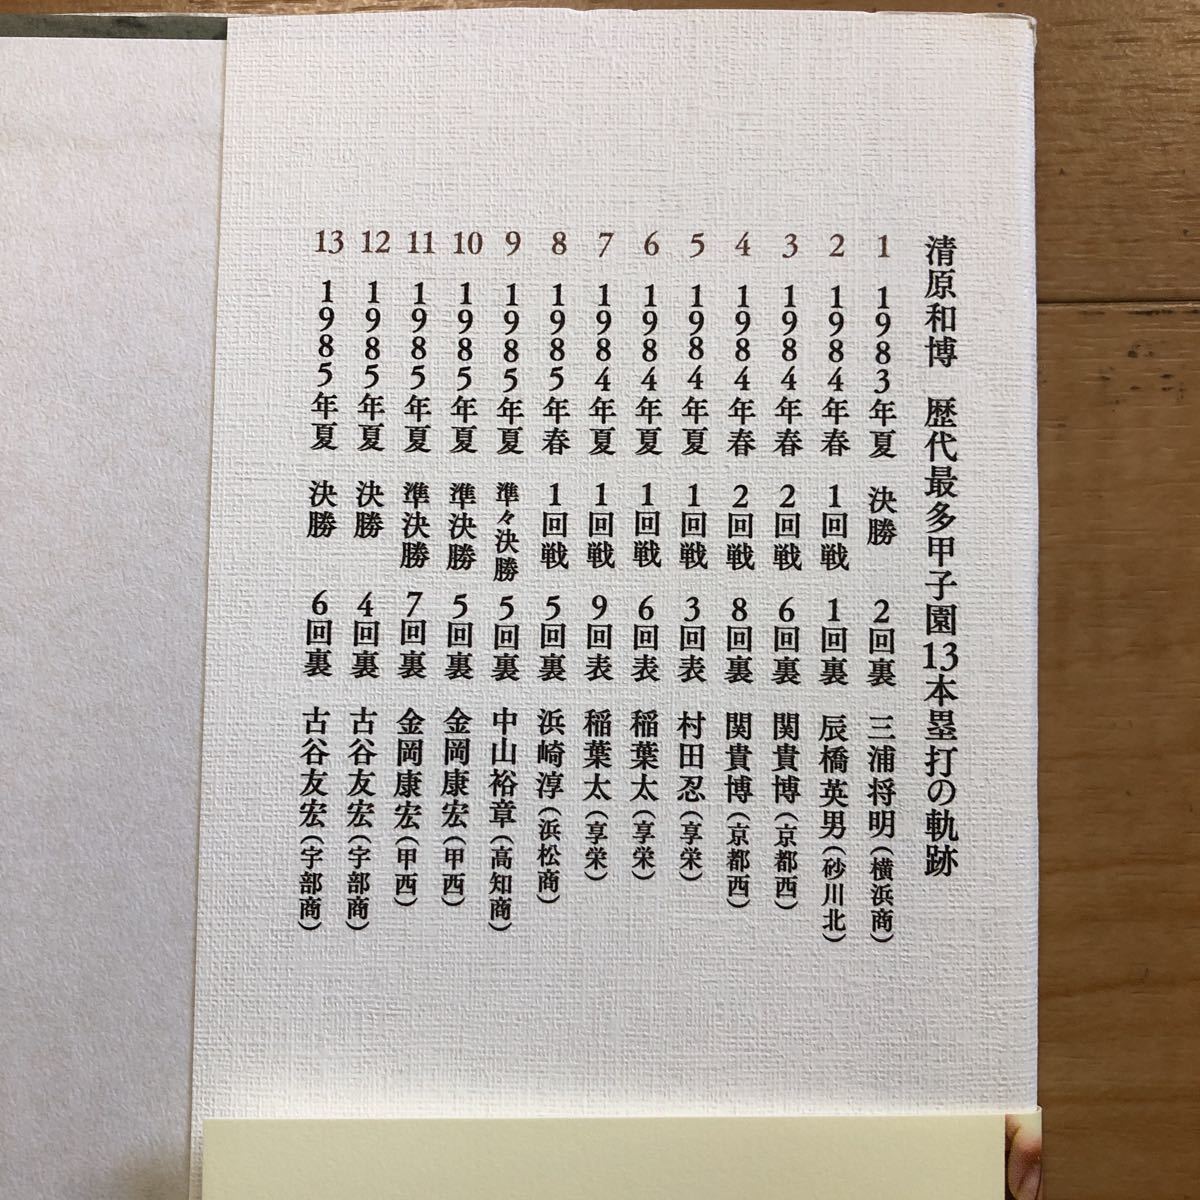 清原和博　歴代最多甲子園13本塁打の軌跡
1　1983年夏　決勝　2回裏　三浦将明(横浜商)
2　1984年春　1回戦　1回裏　辰橋英男(砂川北)
3　1984年春　2回戦　6回裏　関貴博(京都西)
4　1984年春　2回戦　8回裏　関貴博(京都西)
5　1984年夏　1回戦　3回表　村田忍(享栄)
6　1984年夏　1回戦　6回表　稲葉太(享栄)
7　1984年夏　1回戦　9回表　稲葉太(享栄)
8　1985年春　1回戦　5回裏　浜崎淳(浜松商)
9　1985年夏　準々決勝　5回裏　中山裕章(高知商)
10　1985年夏　準決勝　5回裏　金岡康宏(甲西)
11　1985年夏　準決勝　7回裏　金岡康宏(甲西)
12　1985年夏　決勝　4回裏　古谷友宏(宇部商)
13　1985年夏　決勝　6回裏　古谷友宏(宇部商)